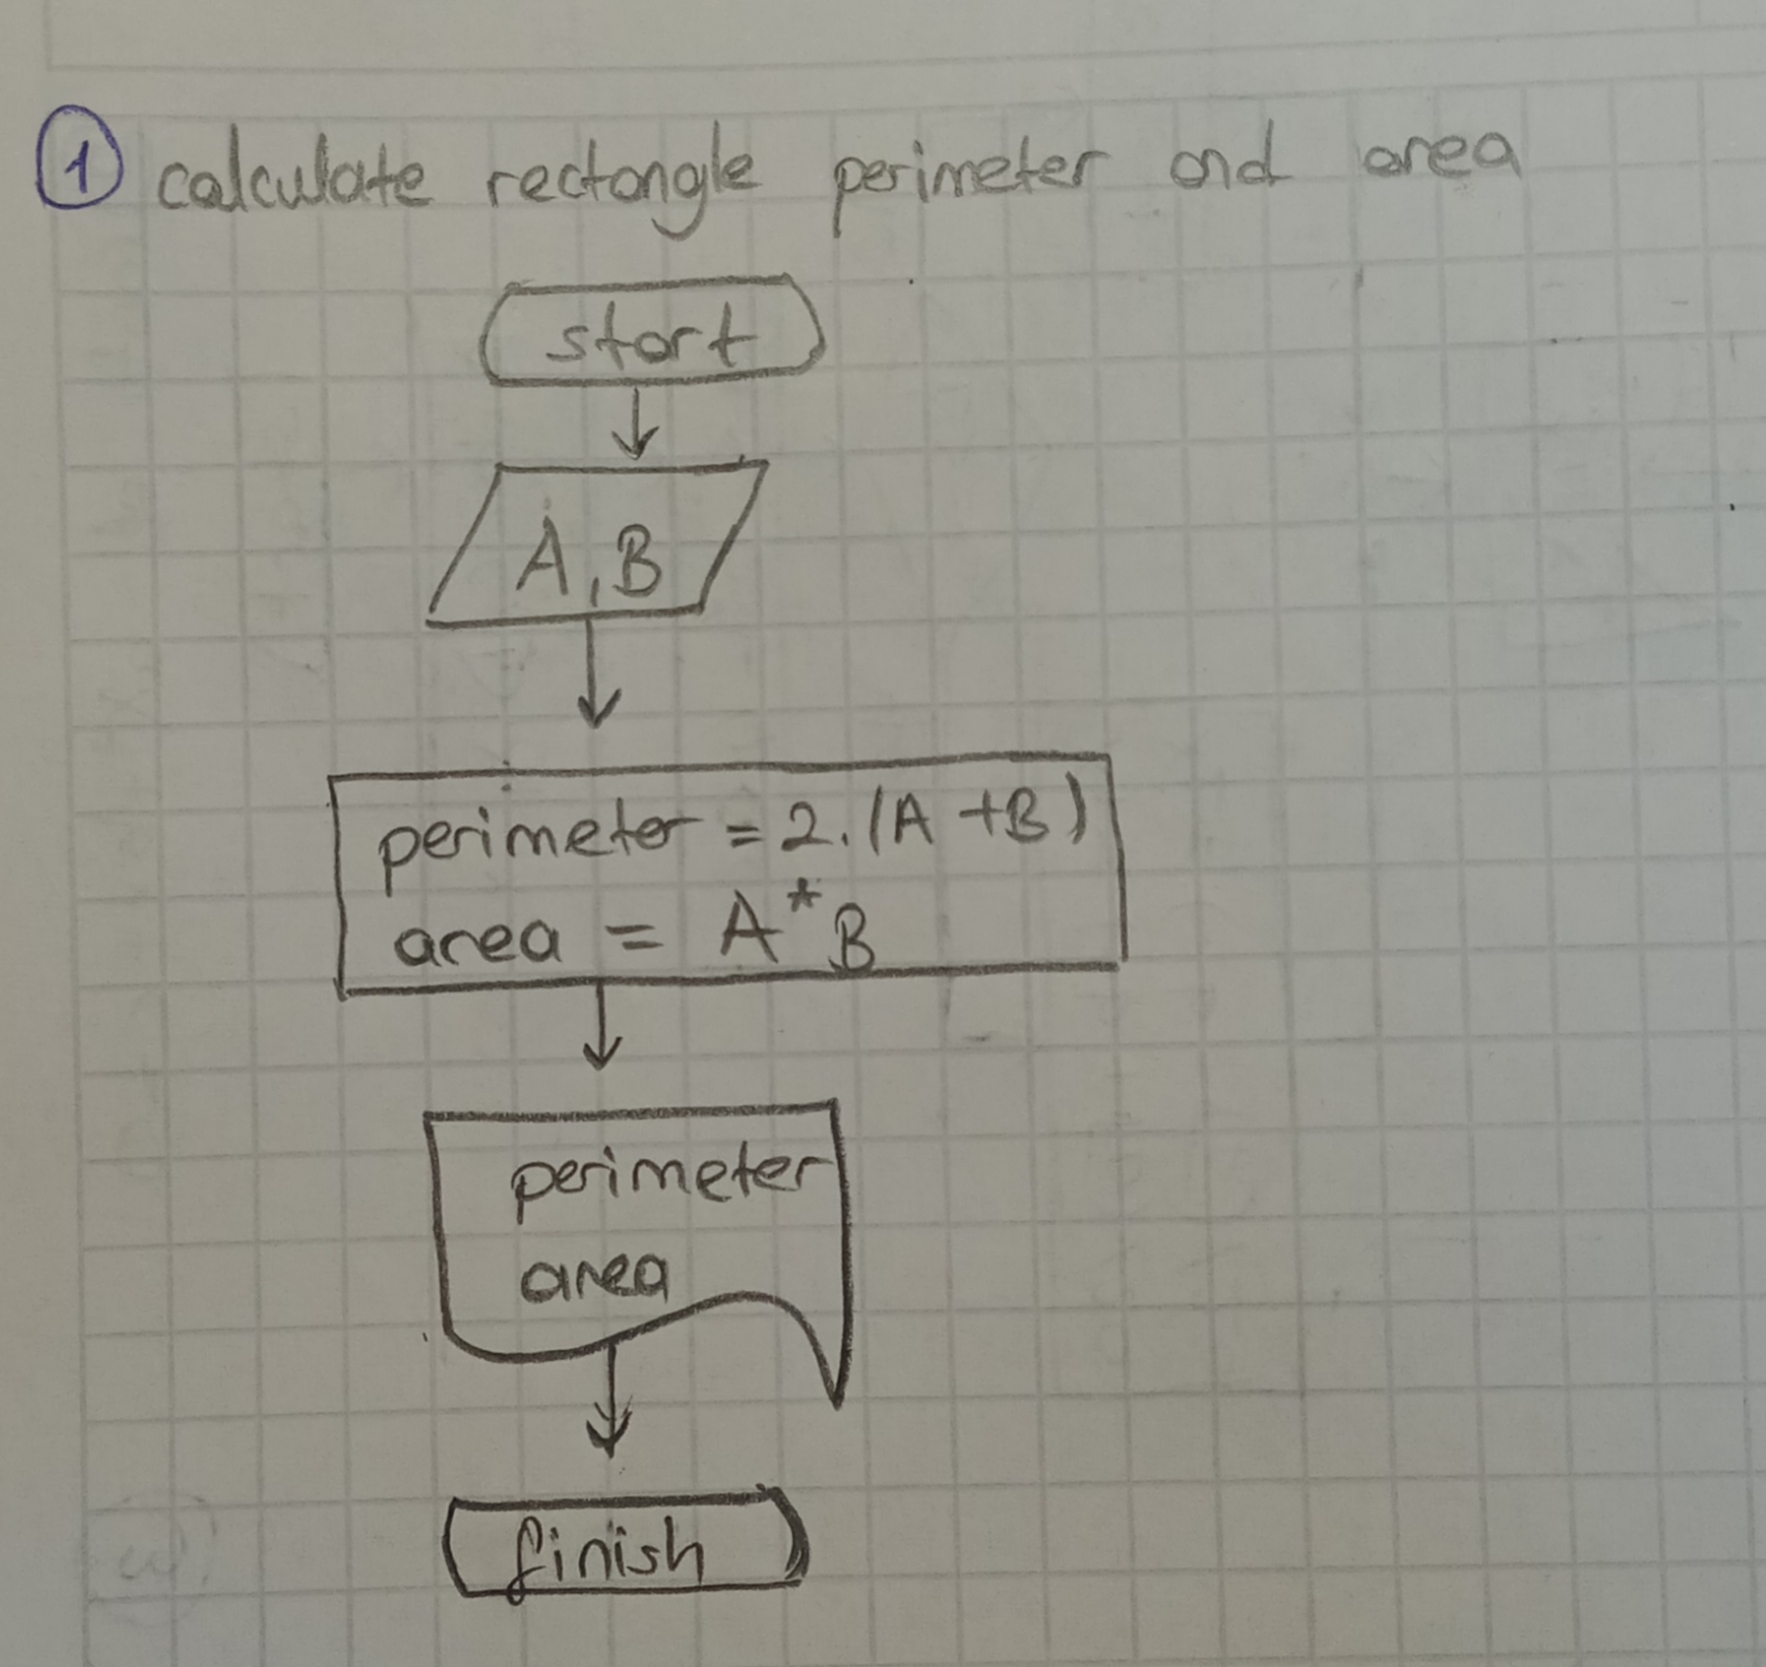 1 calculate rectangle perimeter and area
start
A, B
perimeter = 2.(A+B)
area = A*B
perimeter
area
finish